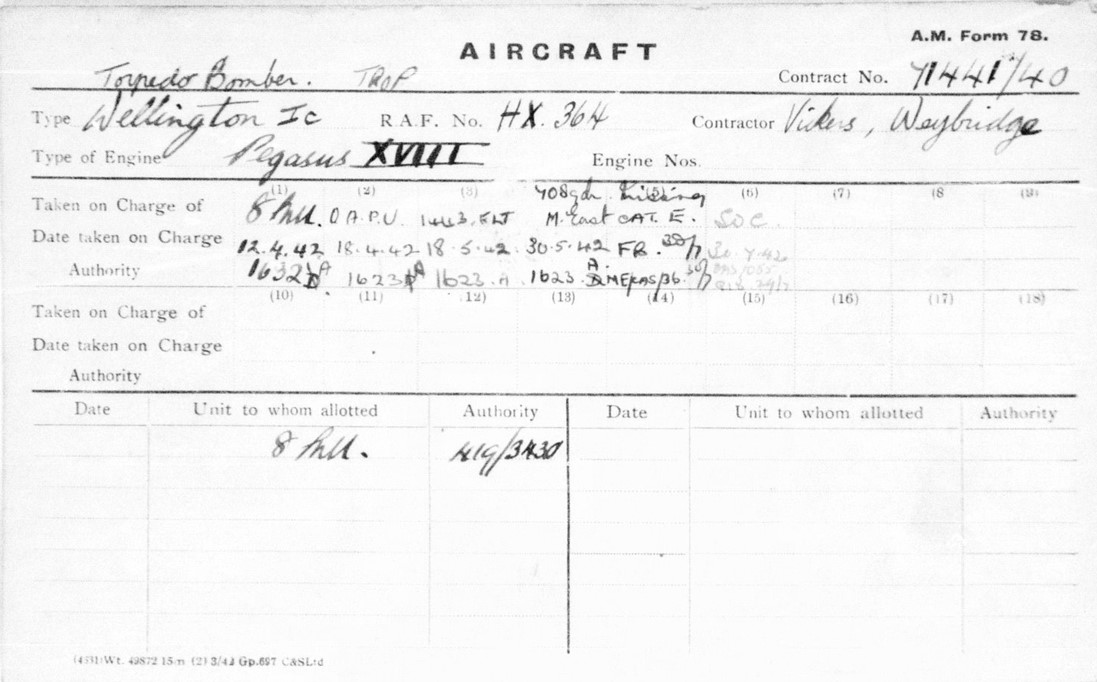 A.M. Form 78.
AIRCRAFT
Torpedo Bomber. TROP Contract No. 71441/40
Type Wellington Ic R.A.F. No. HX. 364 Contractor Vickers, Weybridge
Type of Engine Pegasus XVIII Engine Nos.
(1) (2) (3) (5) (6) (7) (8 (9)
Taken on Charge of 8 M.U. O.A.P.U. 1443 FLT M. East CAT. E. SOC.
Missing
Date taken on Charge 12.4.42 18.4.42 18.5.42 30.5.42 FB. 30/7 30.7.42
Authority 1632 A 1623 A 1623.A 1623 A.
(10) (11) (12) (13) (14) (15) (16) (17) (18)
Taken on Charge of
Date taken on Charge
Authority
Date Unit to whom allotted Authority Date Unit to whom allotted Authority
8 M.U. 419/3430
(4331) Wt. 49872 15m (2) 3/42 Gp.697 C&SLtd